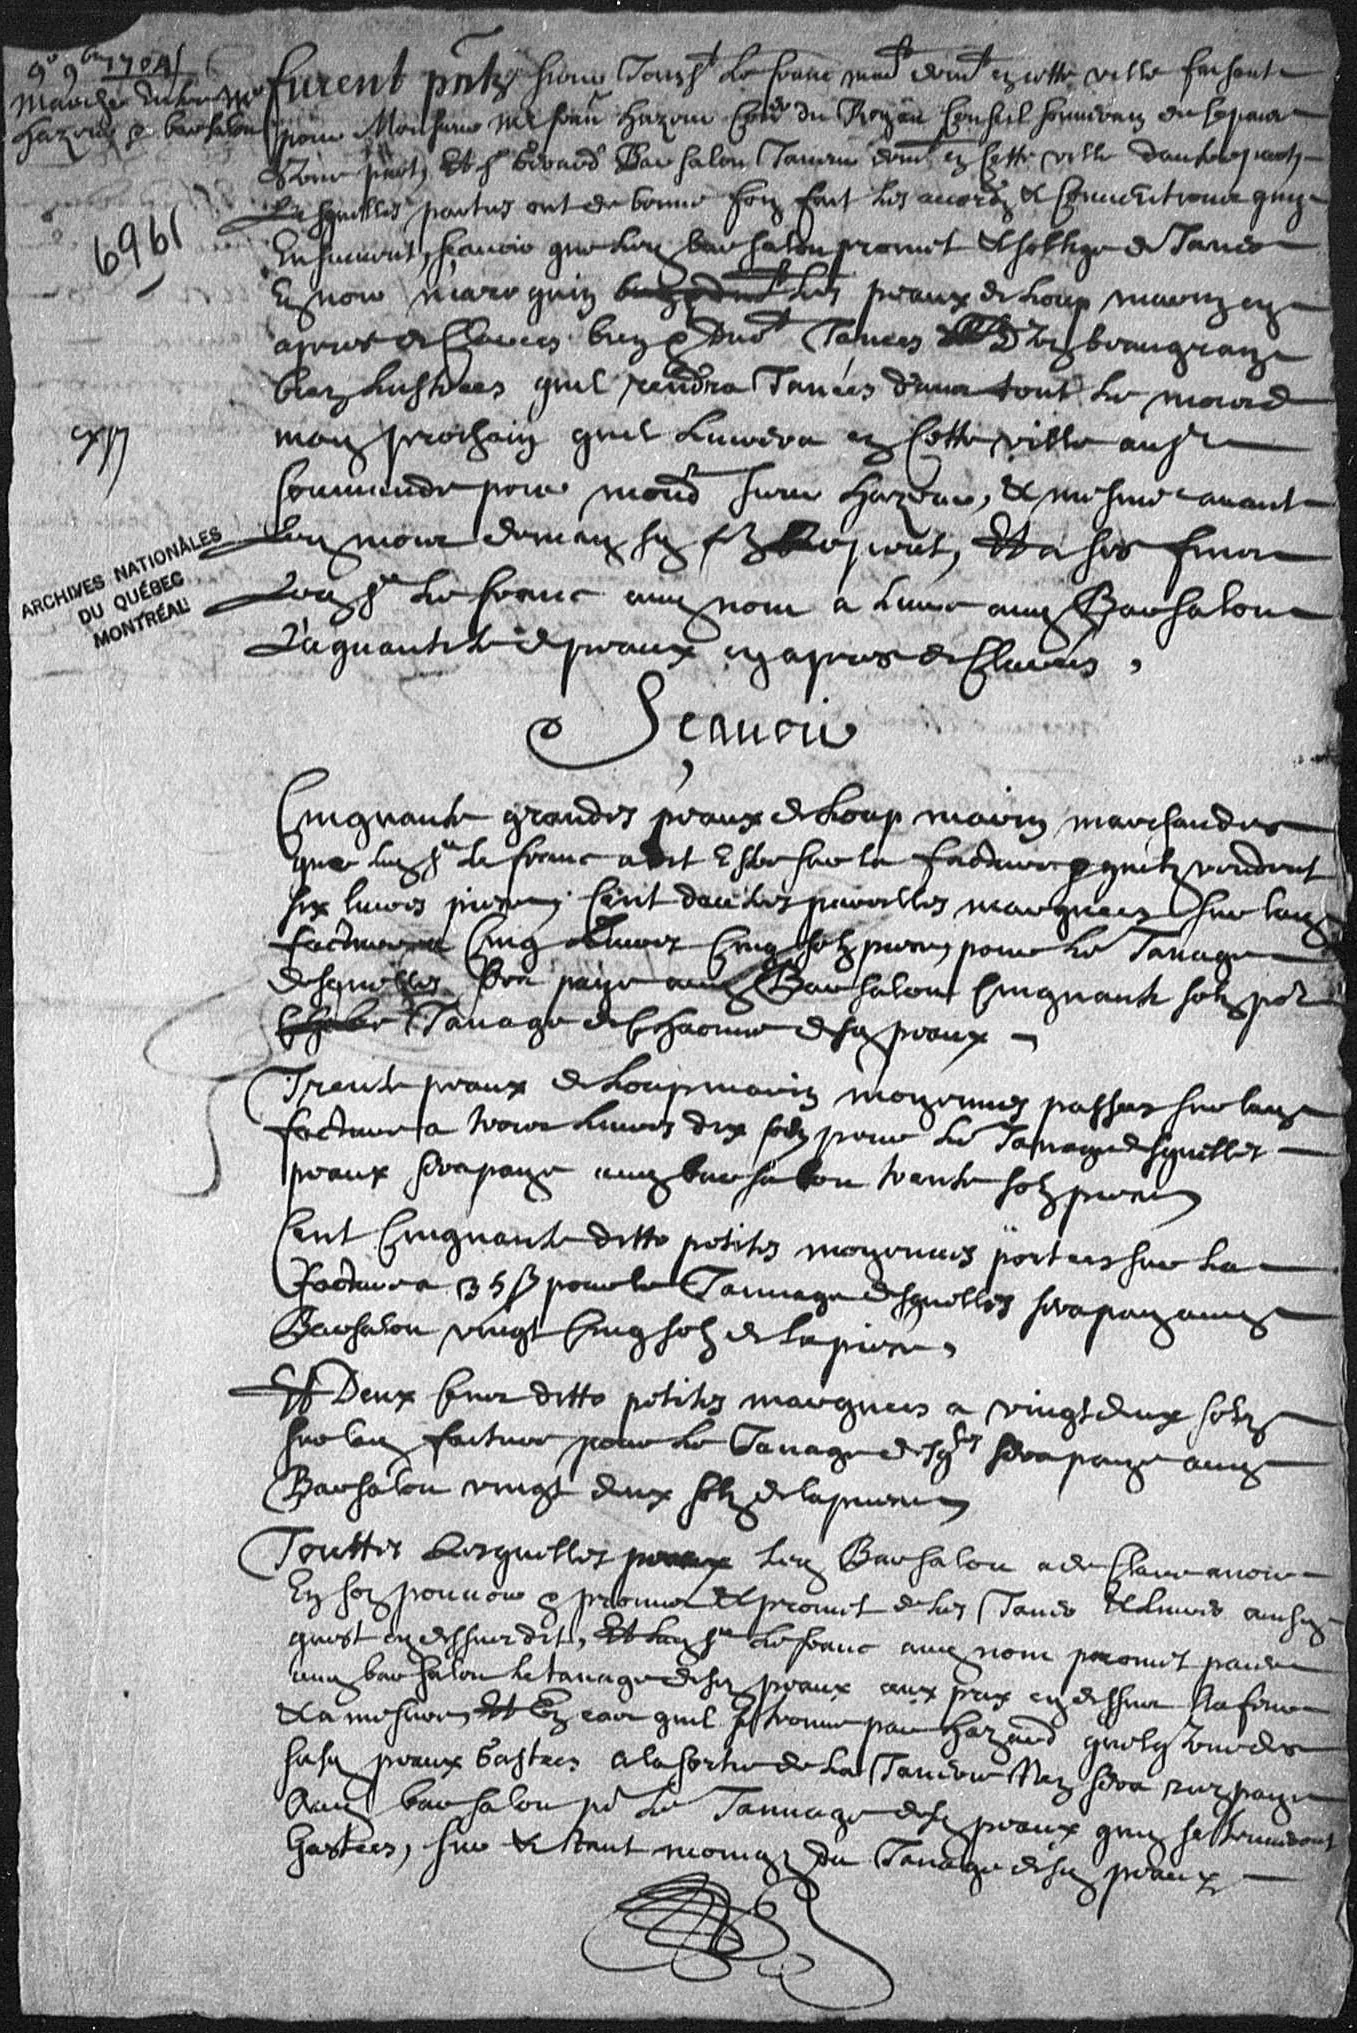 9e 9bre 1704
Marché entre Mr
hazeur & barsalou
6961
ARCHIVES NATIONALES
DU QUÉBEC
MONTRÉAL
Furent pntz sieur le franc marchd demt en cette ville faisant
pour Monsieur Me hazeur Coner du Roy au Conseil souverain de ce pais
d'une part, Et Gerard Barsalou Taneur demt en cette ville d'autre part,
Lesquelles parties ont de bonne foy fait les accords & Conventions qui
Ensuivent, scavoir que led barsalou promet & soblige de Taner
En noir maroquin les peaux de Loup marin cy
apres declarées bien & deumt Tanées beau grain
bien lustrées quil rendra Tanées dans tout le mois de
may prochain quil livrera en Cette ville au Sr
pour mond sieur hazeur, & mesme avant
led mois de may Et a ces fins
Led Sr le franc aud nom a livré aud Barsalou
La quantité de peaux cy apres declarées,
Scavoir
Cinquante grandes peaux de Loup marin marchandes
que led Sr le franc a dit Estre sur la facture quils vendent
six livres piece; Cent dau les pareilles marquées sur lad
facture a Cinq livres Cinq solz piece, pour le Tanage
desquelles sera payé aud Barsalou Cinquante solz pr
Tanage de Chacune desd peaux
Trente peaux de Loup marin moyennes passées sur lad
facture a trois livres dix solz pour le Tanage desquelles
peaux sera payé aud barsalou trente solz piece
Cent Cinquante ditto petites moyennes portées sur la
facture a 35 s pour le Tannage desquelles sera payé aud
Barsalou vingt Cinq solz de la piece,
Et Deux Cens ditto petites marquées a vingt deux solz
sur lad facture pour le Tanage desqles sera payé aud
Barsalou vingt deux solz de la piece
Touttes Lesquelles peaux led Barsalou a declaré avoir
En son pouvoir & promet de les Taner & livrer ainsy
quest cy dessus dit, Et led Sr le franc aud nom promet paier
aud barsalou le tanage desd peaux aux prix cy dessus
a mesure, Et En cas quil se trouve par hazard quelqunes des
susd peaux Gastées a la sortie de la Tannerie Nen sera rien payé
Aud barsalou pr le Tannage desd peaux quy se trouveront
Gastées, du Tanage desd peaux